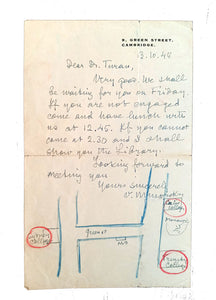 9, GREEN STREET,
CAMBRIDGE.
3.10.44
Dear Dr. Turan,
Very good. We shall
be waiting for you on Friday.
If you are not engaged
come and have lunch with
us at 12.45. If you cannot
come at 2.30 and I shall
show you the Library.
Looking forward to
meeting you
Yours sincerely
V. Minorsky
Green St
College
College
College